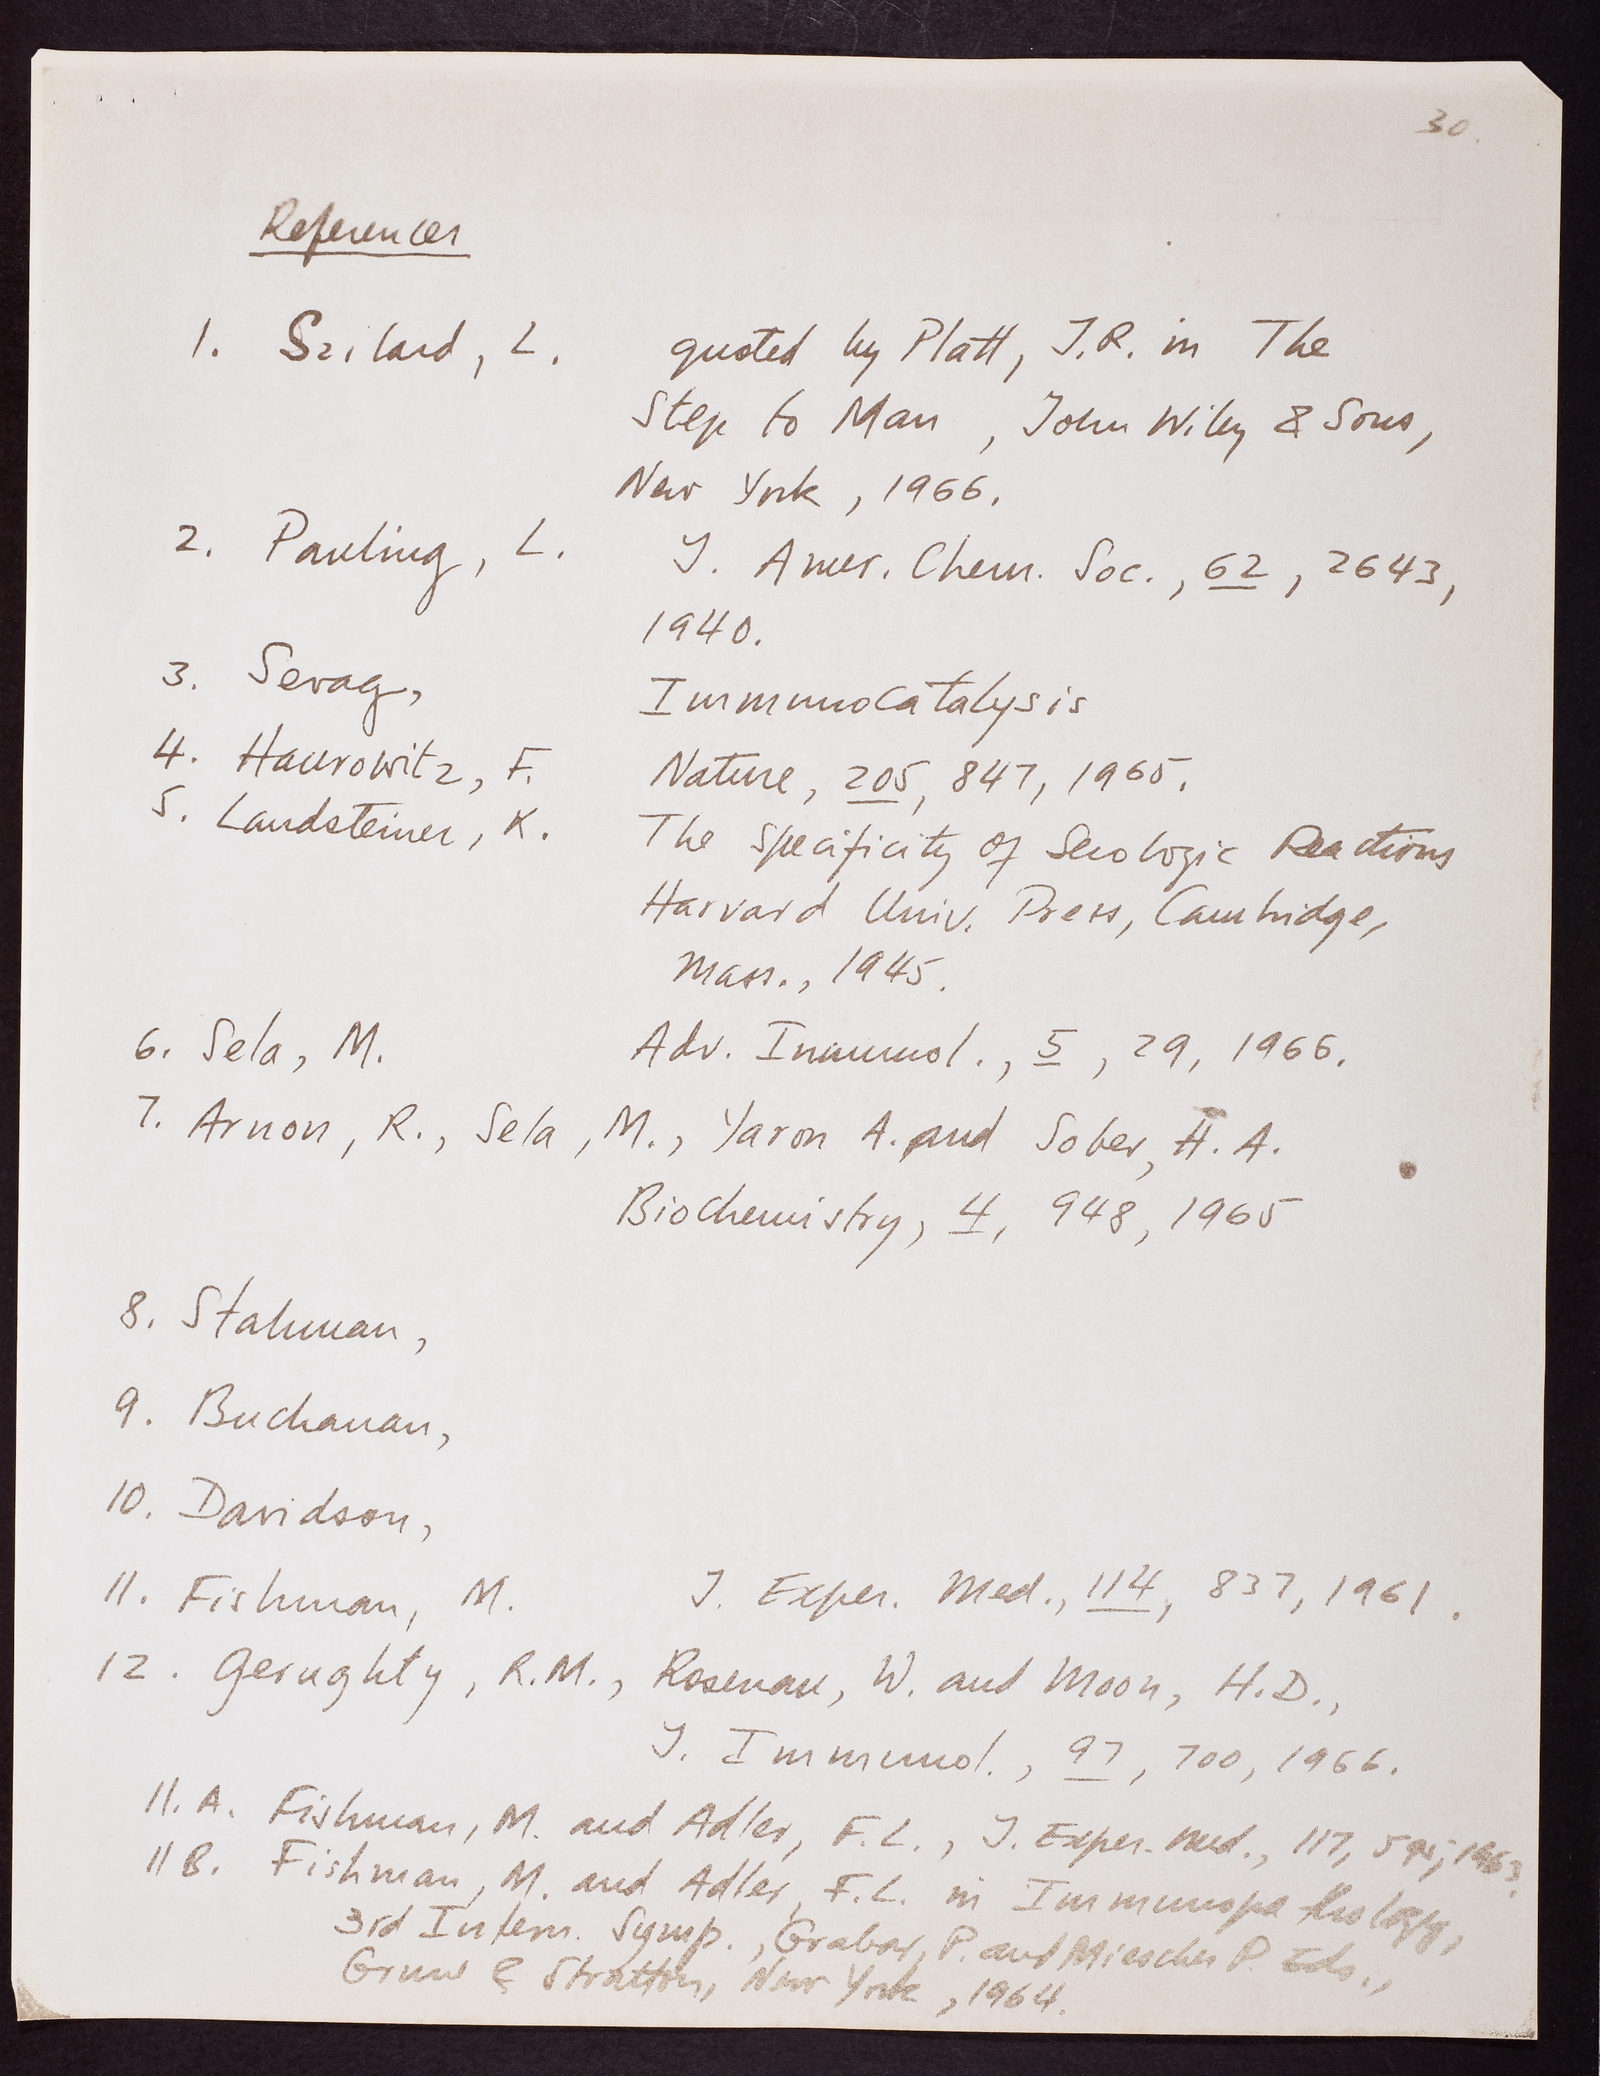 30.
References
1. Szilard, L. quoted by Platt, J.R. in The
Step to Man, John Wiley & Sons,
New York, 1966.
2. Pauling, L. J. Amer. Chem. Soc., 62, 2643,
1940.
3. Sevag, Immunocatalysis
4. Haurowitz, F. Nature, 205, 847, 1965.
5. Landsteiner, K. The Specificity of Serologic Reactions
Harvard Univ. Press, Cambridge,
Mass., 1945.
6. Sela, M. Adv. Immunol., 5, 29, 1966.
7. Arnon, R., Sela, M., Yaron A. and Sober, H. A.
Biochemistry, 4, 948, 1965
8. Stahman,
9. Buchanan,
10. Davidson,
11. Fishman, M. J. Exper. Med., 114, 837, 1961.
12. Gerughty, R.M., Rosenau, W. and Moon, H.D.,
J. Immunol., 97, 700, 1966.
11.A. Fishman, M. and Adler, F.L., J. Exper. Med., 117, 1963.
11B. Fishman, M. and Adler, F.L. in Immunopathology,
3rd Intern. Symp., Grabar, P. and Miescher P. Eds.,
Grune & Stratton, New York, 1964.